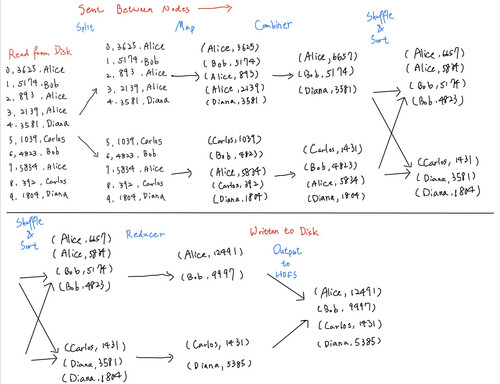 Sent Between Nodes
Split
Map
Combiner
Shuffle
&
Sort
Read from Disk
0, 3625, Alice
1, 5174, Bob
2, 893, Alice
3, 2139, Alice
4, 3581, Diana
5, 1039, Carlos
6, 4823, Bob
7, 5834, Alice
8, 392, Carlos
9, 1804, Diana
0, 3625, Alice
1, 5174, Bob
2, 893, Alice
3, 2139, Alice
4, 3581, Diana
5, 1039, Carlos
6, 4823, Bob
7, 5834, Alice
8, 392, Carlos
9, 1804, Diana
(Alice, 3625)
(Bob, 5174)
(Alice, 893)
(Alice, 2139)
(Diana, 3581)
(Carlos, 1039)
(Bob, 4823)
(Alice, 5834)
(Carlos, 392)
(Diana, 1804)
(Alice, 6657)
(Bob, 5174)
(Diana, 3581)
(Carlos, 1431)
(Bob, 4823)
(Alice, 5834)
(Diana, 1804)
(Alice, 6657)
(Alice, 5834)
(Bob, 5174)
(Bob, 4823)
(Carlos, 1431)
(Diana, 3581)
(Diana, 1804)
Shuffle
&
Sort
Reducer
Written to Disk
Output
to
HDFS
(Alice, 6657)
(Alice, 5834)
(Bob, 5174)
(Bob, 4823)
(Carlos, 1431)
(Diana, 3581)
(Diana, 1804)
(Alice, 12491)
(Bob, 9997)
(Carlos, 1431)
(Diana, 5385)
(Alice, 12491)
(Bob, 9997)
(Carlos, 1431)
(Diana, 5385)